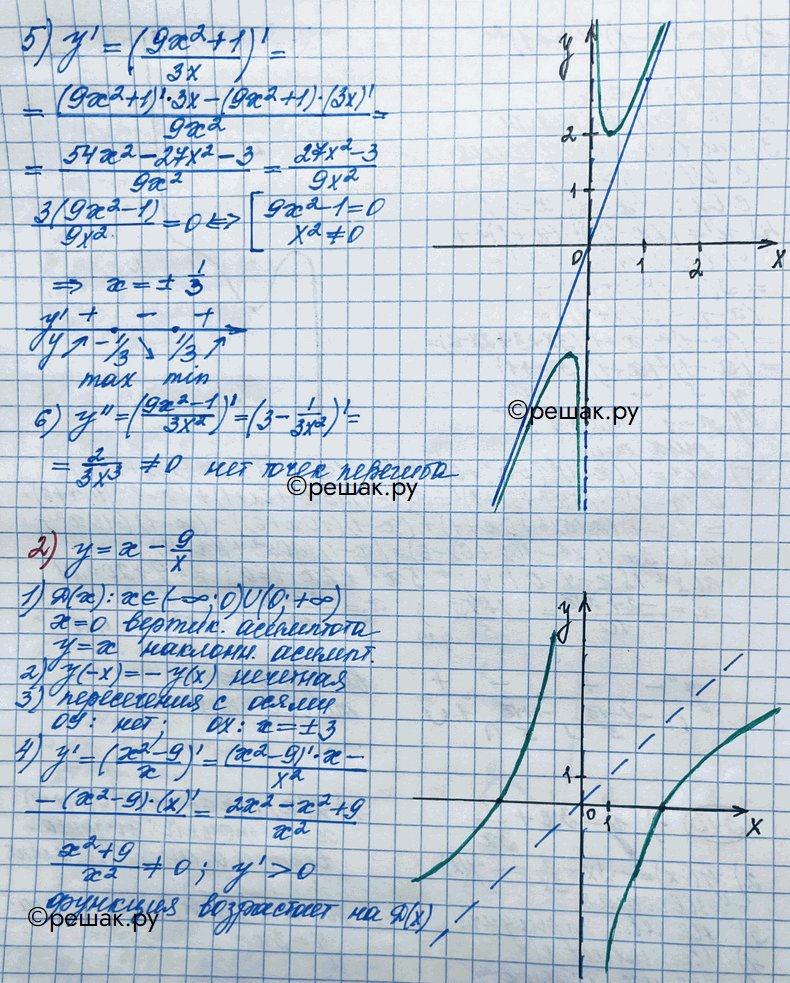 5) y' = (9x²+1 / 3x)' =
= (9x²+1)'·3x−(9x²+1)·(3x)' / 9x² =
= 54x²−27x²−3 / 9x² = 27x²−3 / 9x²
3(9x²−1) / 9x² = 0 <=> [ 9x²−1=0
x²≠0
=> x = ± 1/3
y' + − +
y ↗ −1/3 ↘ 1/3 ↗
max min
6) y'' = (9x²−1 / 3x²)' = (3 − 1/3x²)' =
= 2/3x³ ≠ 0 нет точек перегиба
©решак.ру
y
2
1
0 1 2 x
©решак.ру
2) y = x − 9/x
1) D(x): x∈(−∞;0)U(0;+∞)
x=0 вертик. асимптота
y=x наклонн. асимпт.
2) y(−x)=−y(x) нечетная
3) пересечения с осями
OY: нет; OX: x=±3
4) y' = (x²−9 / x)' = (x²−9)'·x−
x²
−(x²−9)·(x)' = 2x²−x²+9 / x²
x²+9 / x² ≠ 0; y' > 0
функция возрастает на D(x)
©решак.ру
y
1
0 1 x